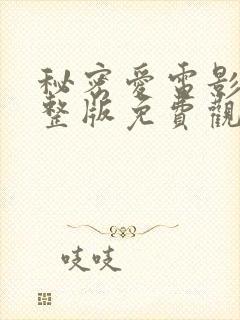 秘密愛電影
整版免費觀
吱吱